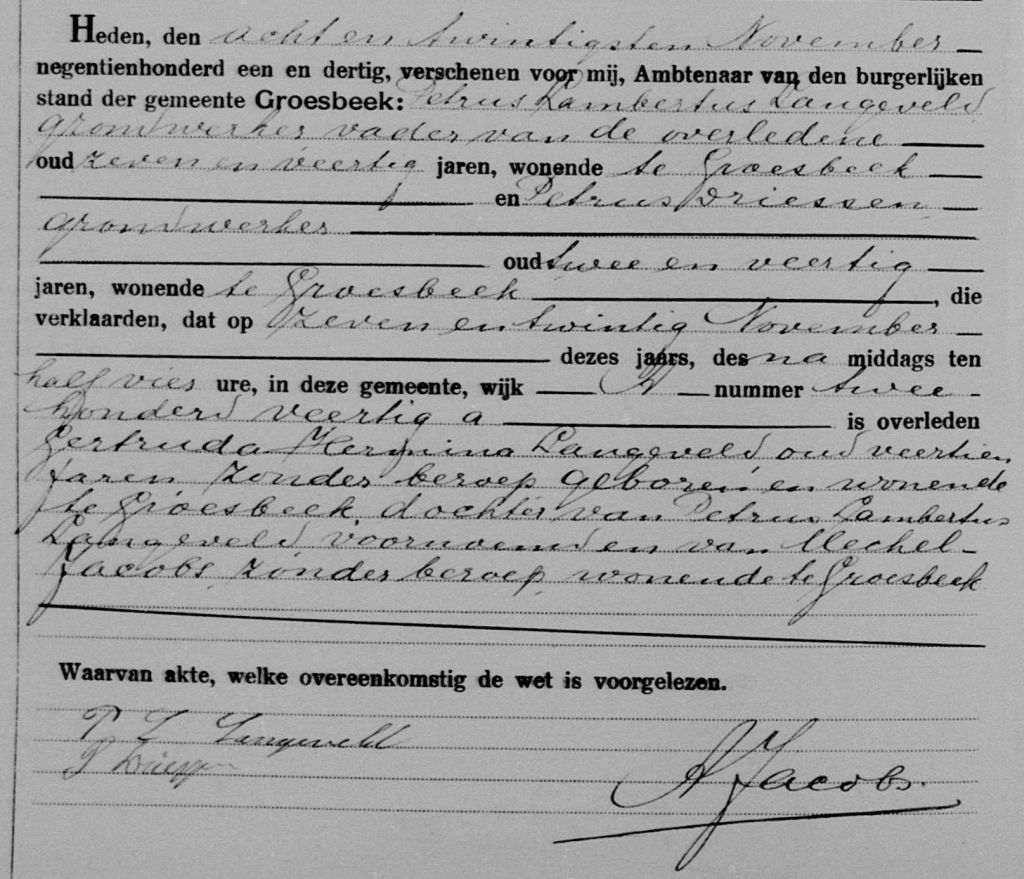 Heden, den acht en twintigsten November
negentienhonderd een en dertig, verschenen voor mij, Ambtenaar van den burgerlijken
stand der gemeente Groesbeek: Petrus Lambertus Langeveld
grondwerker vader van de overledene
oud zeven en veertig jaren, wonende te Groesbeek
en Petrus Driessen
grondwerker
oud twee en veertig
jaren, wonende te Groesbeek, die
verklaarden, dat op zeven en twintig November
dezes jaars, des na middags ten
half vier ure, in deze gemeente, wijk A nummer twee
honderd veertig a is overleden
Gertruda Hermina Langeveld oud veertien
jaren zonder beroep geboren en wonende
te Groesbeek, dochter van Petrus Lambertus
Langeveld voornoemd en van Mechel
Jacobs, zonder beroep, wonende te Groesbeek
Waarvan akte, welke overeenkomstig de wet is voorgelezen.
P L Langeveld
P Driessen
A Jacobs.